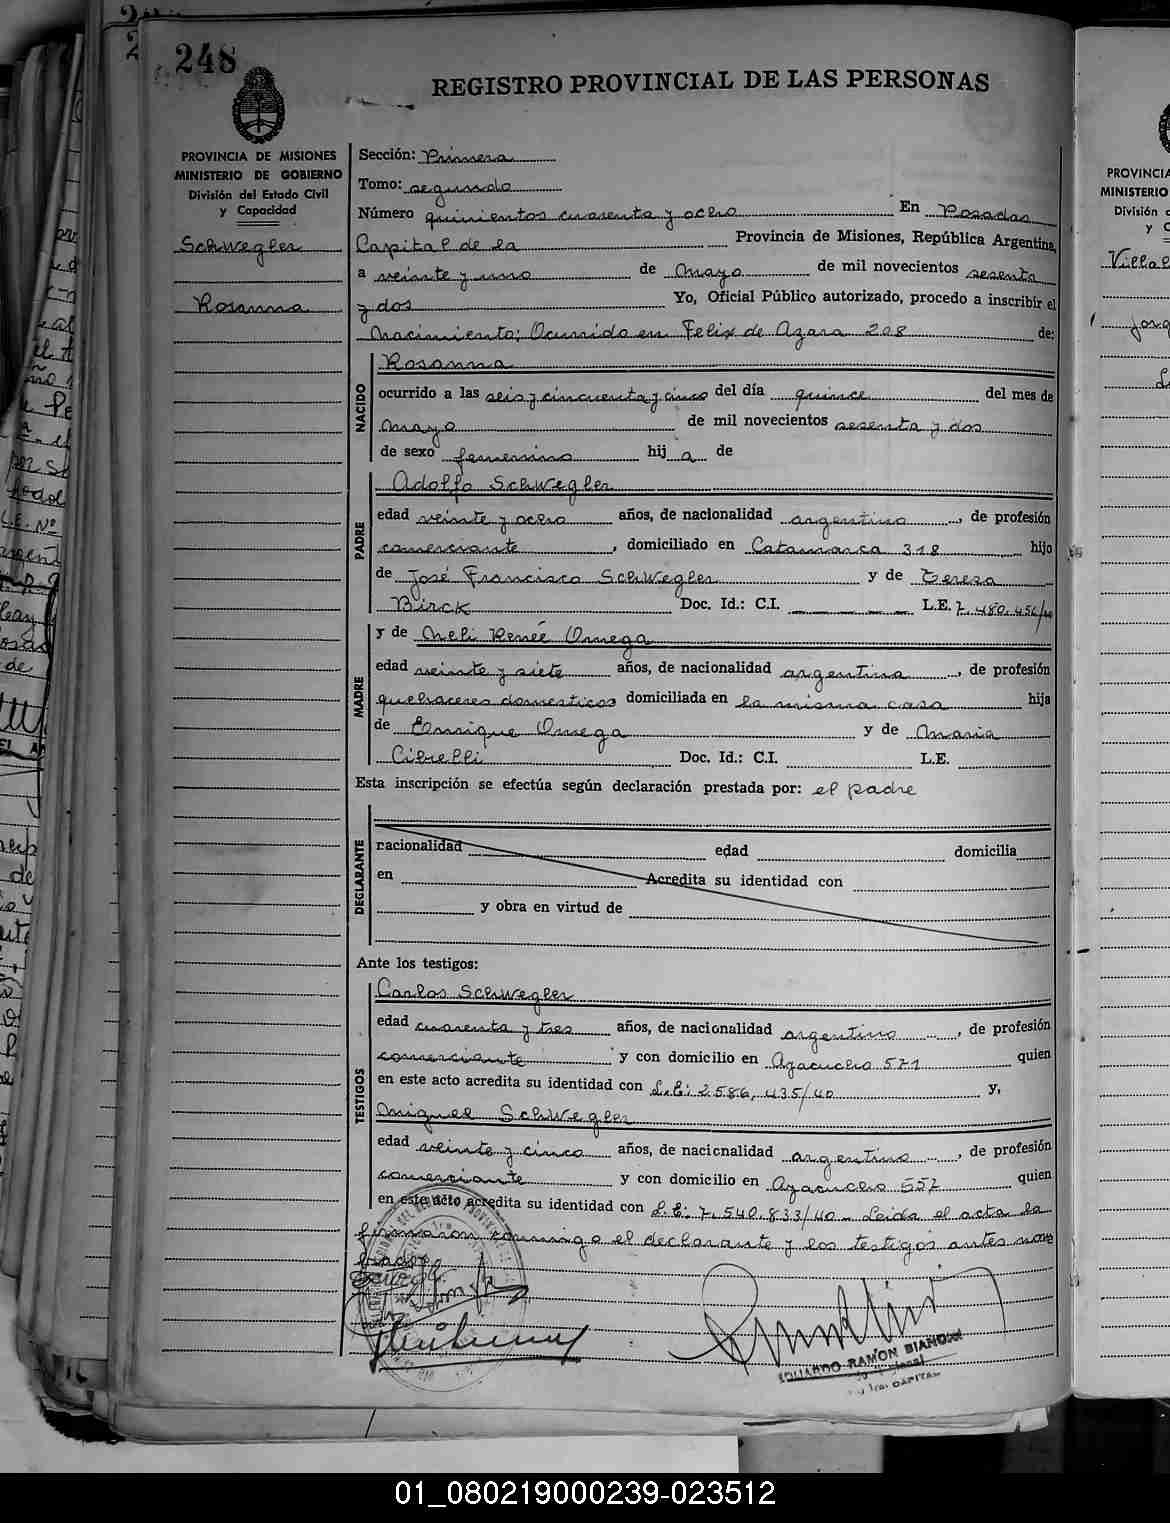 248
REGISTRO PROVINCIAL DE LAS PERSONAS
PROVINCIA DE MISIONES
MINISTERIO DE GOBIERNO
División del Estado Civil
y Capacidad
Schwegler
Rosanna
Sección: Primera
Tomo: segundo
Número quinientos cuarenta y ocho En Posadas
Capital de la Provincia de Misiones, República Argentina,
a veinte y uno de mayo de mil novecientos sesenta
y dos Yo, Oficial Público autorizado, procedo a inscribir el
nacimiento: Ocurrido en Felix de Azara 208 de:
NACIDO
Rosanna
ocurrido a las seis y cincuenta y cinco del día quince del mes de
mayo de mil novecientos sesenta y dos
de sexo femenino hij a de
PADRE
Adolfo Schwegler
edad veinte y ocho años, de nacionalidad argentino, de profesión
comerciante, domiciliado en Catamarca 318 hijo
de José Francisco Schwegler y de Tereza
Birck Doc. Id.: C.I. L.E. 7.480.456/40
MADRE
y de Neli Renée Omega
edad veinte y siete años, de nacionalidad argentina, de profesión
quehaceres domesticos domiciliada en la misma casa hija
de Enrrique Omega y de Maria
Cibelli Doc. Id.: C.I. L.E.
Esta inscripción se efectúa según declaración prestada por: el padre
DECLARANTE
nacionalidad edad domicilia
en Acredita su identidad con
y obra en virtud de
Ante los testigos:
TESTIGOS
Carlos Schwegler
edad cuarenta y tres años, de nacionalidad argentino, de profesión
comerciante y con domicilio en Ayacucho 571 quien
en este acto acredita su identidad con L.E: 2586,435/40 y,
Miguel Schwegler
edad veinte y cinco años, de nacionalidad argentino, de profesión
comerciante y con domicilio en Ayacucho 557 quien
en este acto acredita su identidad con L.E: 7.540.833/40_ Leida el acta la
firmaron conmigo el declarante y los testigos antes nom
brados
EDUARDO RAMON BIANCHI
CAPITAL
PROVINCIA
MINISTERIO
División
Villal
Jorg
01_080219000239-023512